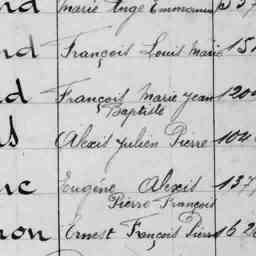 nd Marie Ange Emmanuel 337
nd François Louis Marie 151
d François Marie Jean 120
Baptiste
s Alexis Julien Pierre 104
ne Eugène Alexis 137
Pierre François
non Ernest François Pierre 626